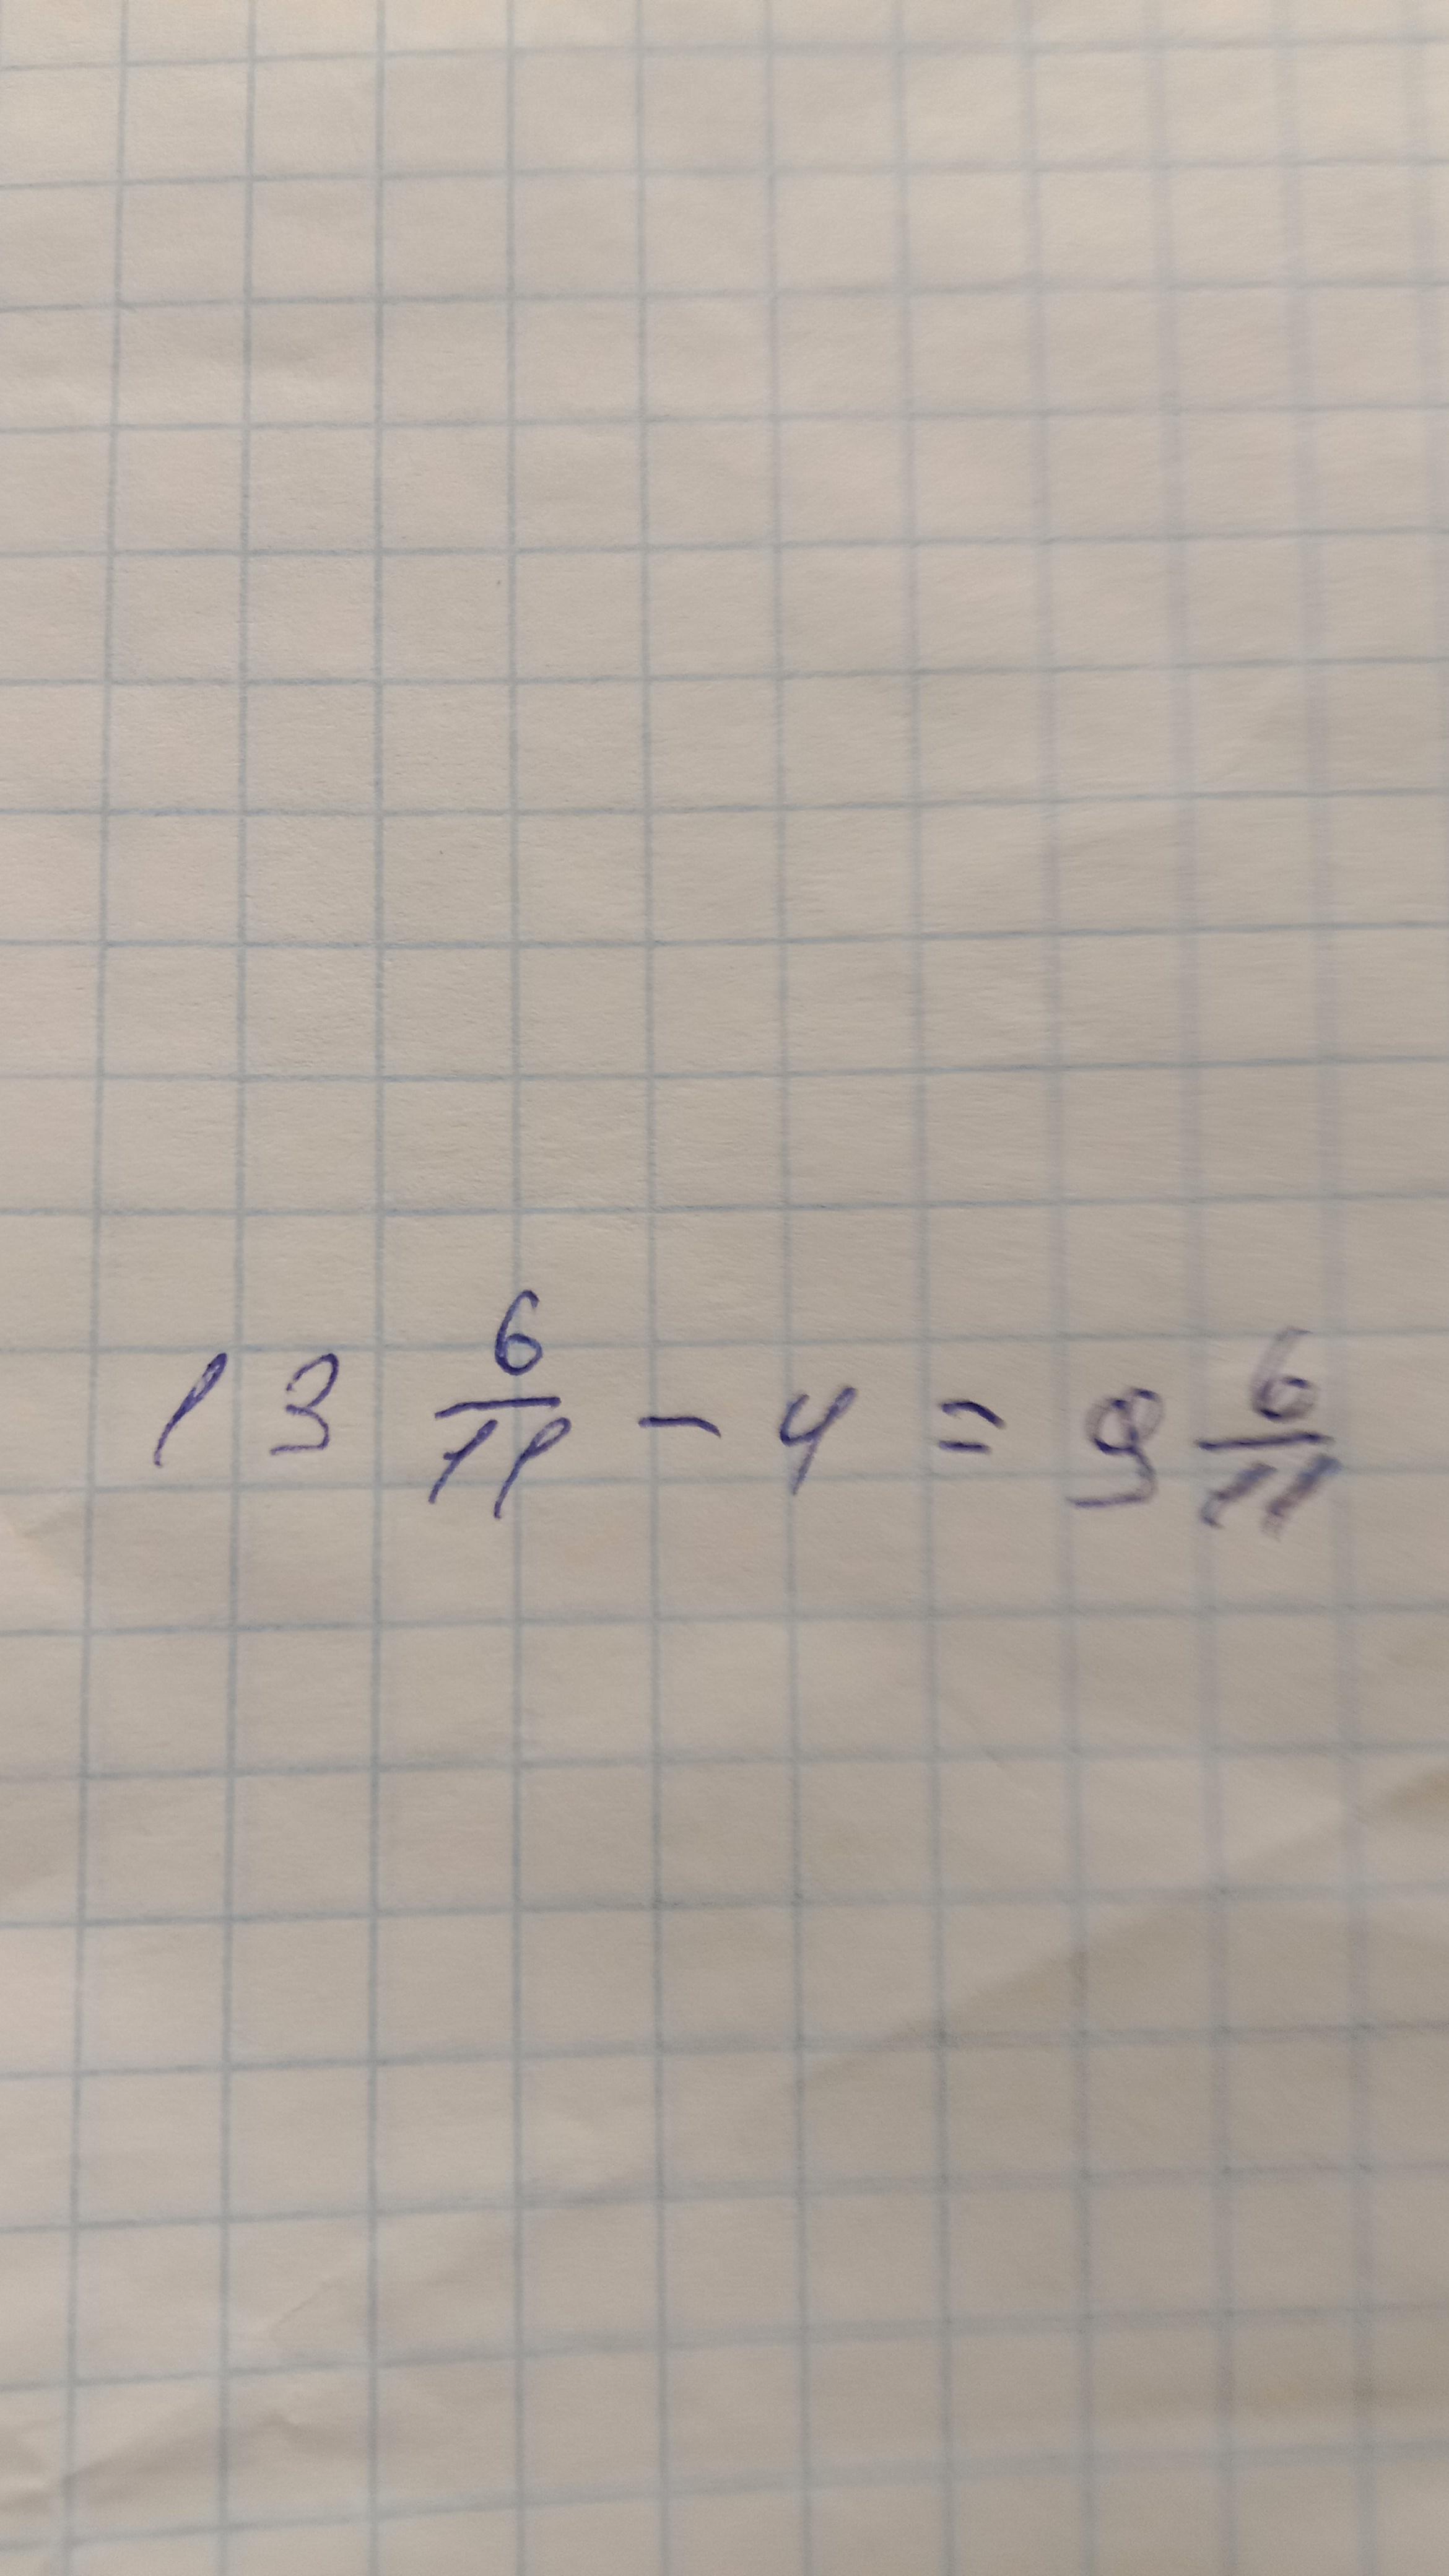 13 6/11 - 4 = 9 6/11